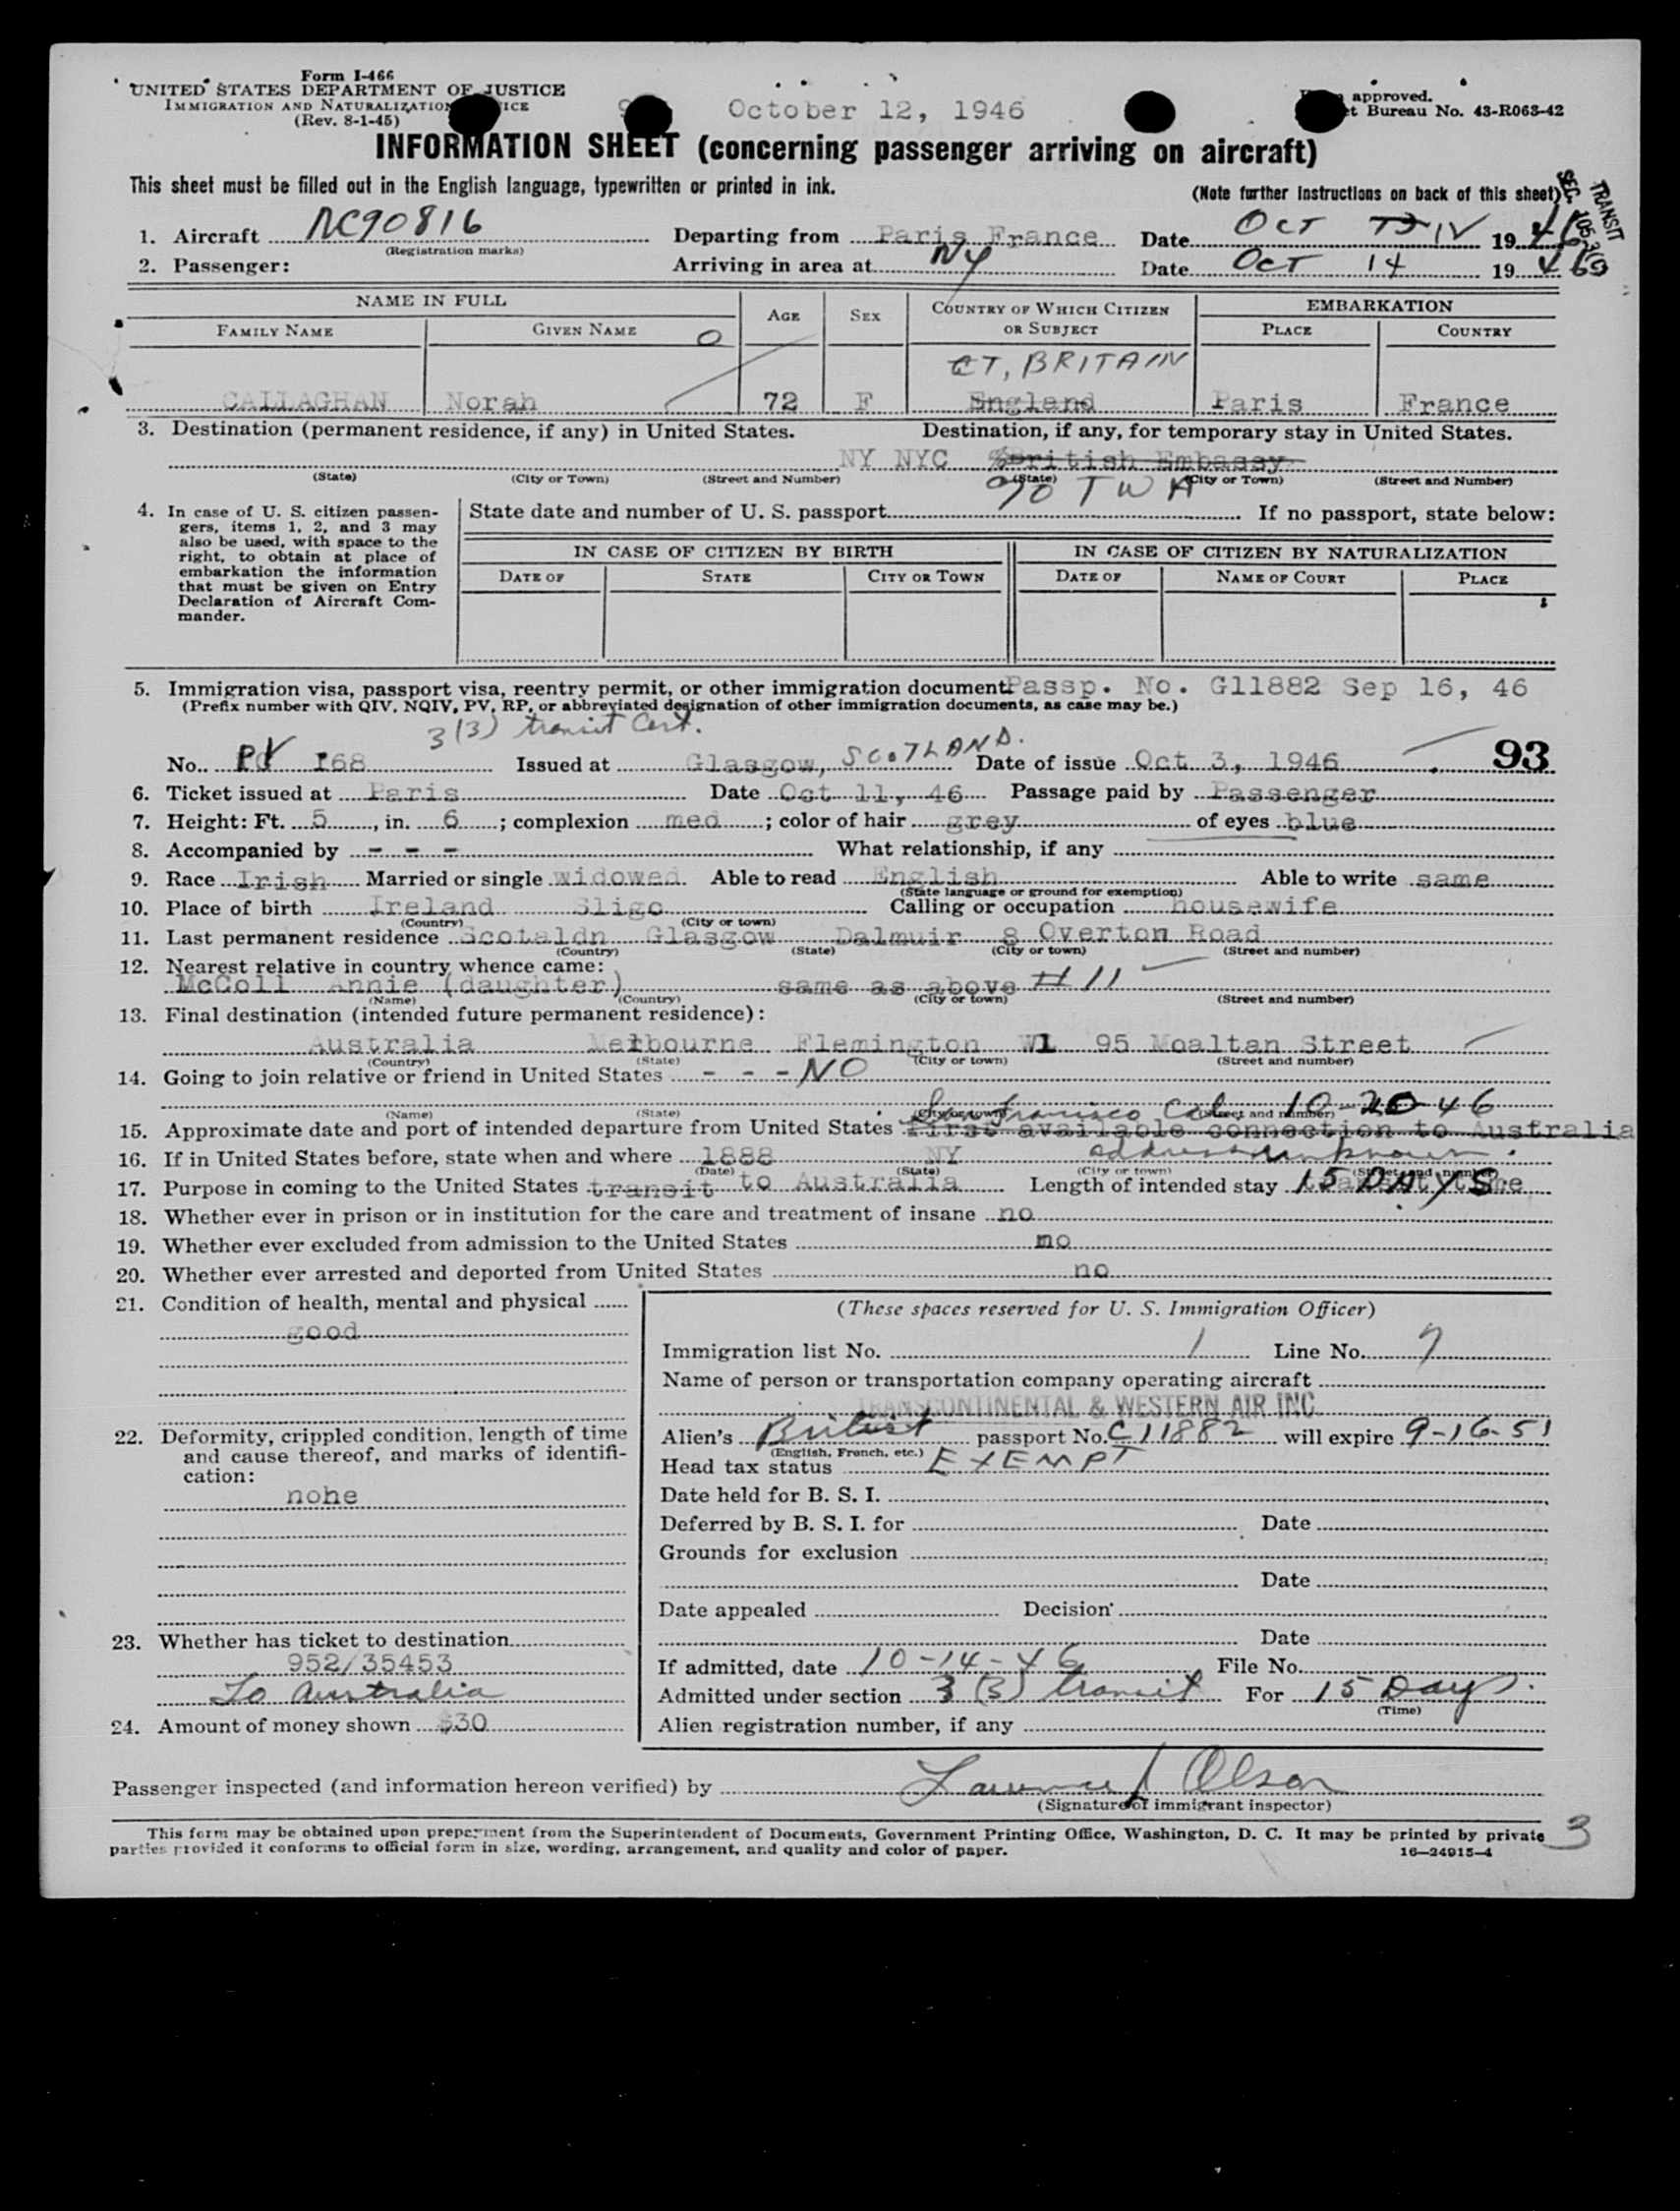 Form I-466
UNITED STATES DEPARTMENT OF JUSTICE
IMMIGRATION AND NATURALIZATION
(Rev. 8-1-45)
October 12, 1946
approved.
Bureau No. 43-R063-42
INFORMATION SHEET (concerning passenger arriving on aircraft)
This sheet must be filled out in the English language, typewritten or printed in ink.
(Note further instructions on back of this sheet)
TRANSIT
SEC.
1. Aircraft NC90816 Departing from Paris France Date OCT 19 46
(Registration marks)
2. Passenger: Arriving in area at NY Date OCT 14 19 46
NAME IN FULL AGE SEX COUNTRY OF WHICH CITIZEN OR SUBJECT EMBARKATION
FAMILY NAME GIVEN NAME PLACE COUNTRY
GT, BRITAIN
CALLAGHAN Norah 72 F England Paris France
3. Destination (permanent residence, if any) in United States. Destination, if any, for temporary stay in United States.
NY NYC British Embassy
(State) (City or Town) (Street and Number) (State) (City or Town) (Street and Number)
c/o TWA
4. In case of U. S. citizen passengers, items 1, 2, and 3 may also be used, with space to the right, to obtain at place of embarkation the information that must be given on Entry Declaration of Aircraft Commander.
State date and number of U. S. passport If no passport, state below:
IN CASE OF CITIZEN BY BIRTH IN CASE OF CITIZEN BY NATURALIZATION
DATE OF STATE CITY OR TOWN DATE OF NAME OF COURT PLACE
5. Immigration visa, passport visa, reentry permit, or other immigration document: Passp. No. G11882 Sep 16, 46
(Prefix number with QIV, NQIV, PV, RP, or abbreviated designation of other immigration documents, as case may be.)
3(3) transit Cert.
No. PV 168 Issued at Glasgow, SCOTLAND. Date of issue Oct 3, 1946 93
6. Ticket issued at Paris Date Oct 11, 46 Passage paid by Passenger
7. Height: Ft. 5, in. 6; complexion med; color of hair grey of eyes blue
8. Accompanied by - - - What relationship, if any
9. Race Irish Married or single widowed Able to read English Able to write same
(State language or ground for exemption)
10. Place of birth Ireland Sligo Calling or occupation housewife
(Country) (City or town)
11. Last permanent residence Scotaldn Glasgow Dalmuir 8 Overton Road
(Country) (State) (City or town) (Street and number)
12. Nearest relative in country whence came:
McColl Annie (daughter) same as above #11
(Name) (Country) (City or town) (Street and number)
13. Final destination (intended future permanent residence):
Australia Melbourne Flemington W1 95 Moaltan Street
(Country) (State) (City or town) (Street and number)
14. Going to join relative or friend in United States - - - NO
San Francisco Cal 10-20-46
(Name) (State) (City or town) (Street and number)
15. Approximate date and port of intended departure from United States first available connection to Australia
16. If in United States before, state when and where 1888 NY address unknown.
(Date) (State) (City or town) (Street and number)
17. Purpose in coming to the United States transit to Australia Length of intended stay 15 DAYS
18. Whether ever in prison or in institution for the care and treatment of insane no
19. Whether ever excluded from admission to the United States no
20. Whether ever arrested and deported from United States no
21. Condition of health, mental and physical
good
22. Deformity, crippled condition, length of time and cause thereof, and marks of identification:
nohe
23. Whether has ticket to destination
952/35453
To Australia
24. Amount of money shown $30
(These spaces reserved for U. S. Immigration Officer)
Immigration list No. 1 Line No. 7
Name of person or transportation company operating aircraft
TRANSCONTINENTAL & WESTERN AIR INC.
Alien's British passport No. C11882 will expire 9-16-51
(English, French, etc.)
Head tax status EXEMPT
Date held for B. S. I.
Deferred by B. S. I. for Date
Grounds for exclusion
Date
Date appealed Decision
Date
If admitted, date 10-14-46 File No.
Admitted under section 3 (3) transit For 15 Days.
(Time)
Alien registration number, if any
Passenger inspected (and information hereon verified) by Olson
(Signature of immigrant inspector)
This form may be obtained upon prepayment from the Superintendent of Documents, Government Printing Office, Washington, D. C. It may be printed by private
parties provided it conforms to official form in size, wording, arrangement, and quality and color of paper.
16—24915-4
3